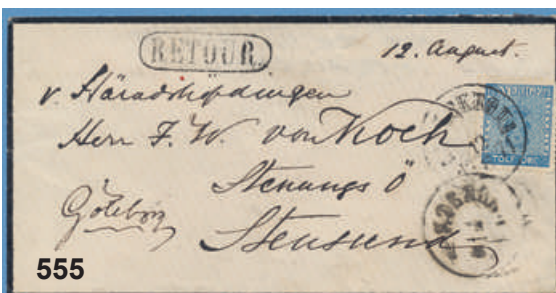 RETOUR
12. August.
v. Häradshöfdingen
Herr F. W. von Koch
Stenungs Ö
Göteborg
Stensund
555
TOLF ÖRE